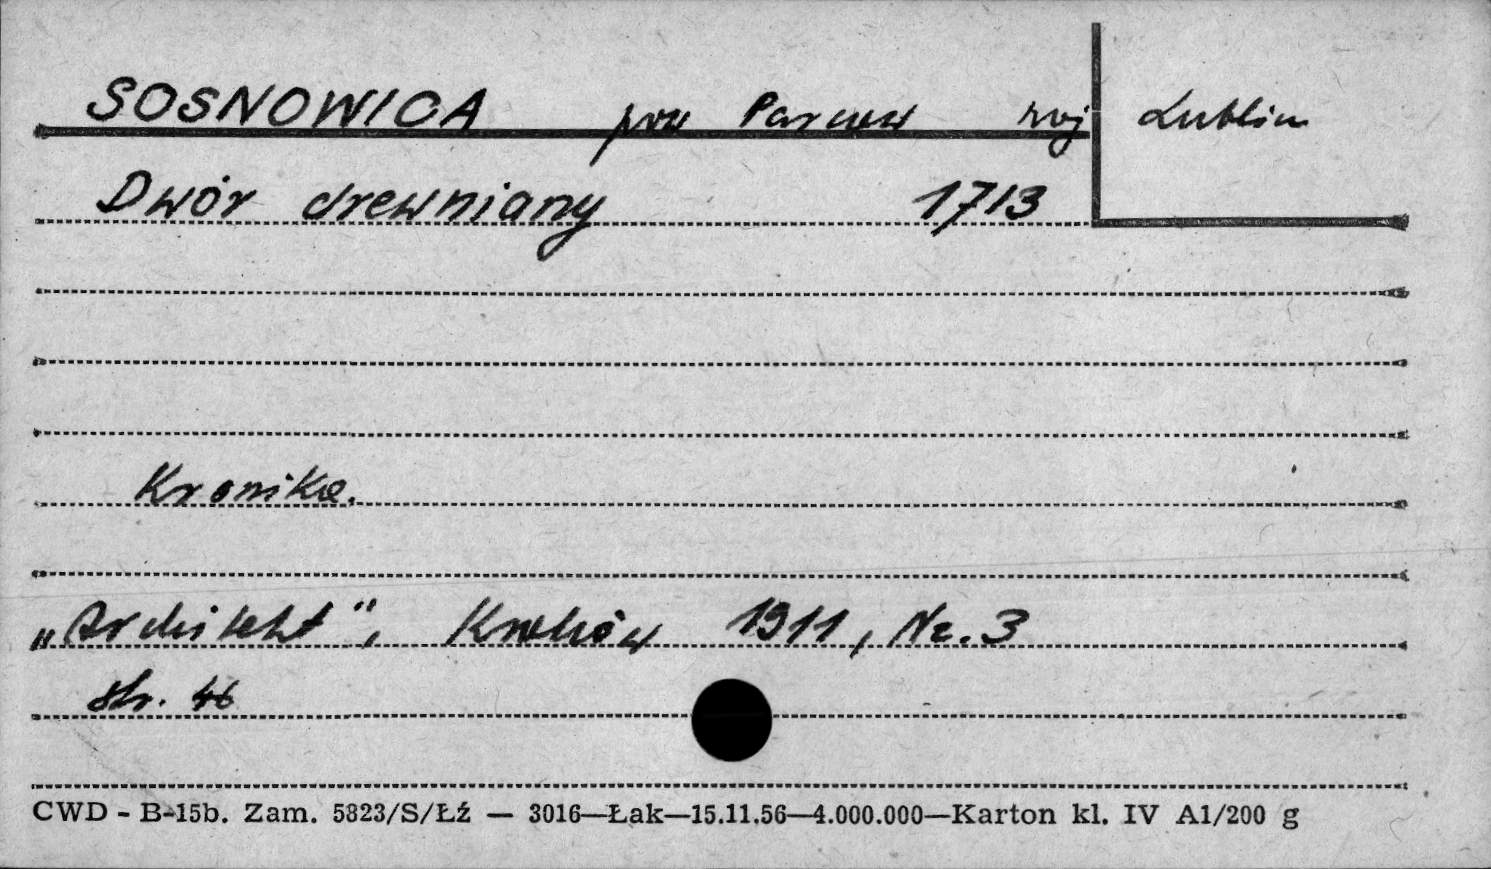 SOSNOWICA pow Parczew woj Lublin
Dwór drewniany 1713
Kronika.
„Architekt", Kraków 1911, Nr. 3
str. 46
CWD - B-15b. Zam. 5823/S/Łź — 3016—Łak—15.11.56—4.000.000—Karton kl. IV A1/200 g